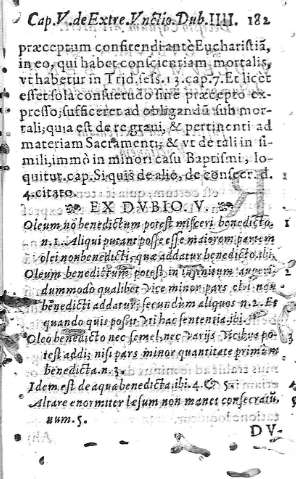 Cap. V. de Extre. Vnctio. Dub. IIII. 182
præceptum confitendi antè Eucharistiã,
in eo, qui habet conscientiam mortalis,
vt habetur in Trid. sess. 13. cap. 7. Et licèt
esset sola consuetudo sine præcepto ex-
presso, sufficeret ad obligandũ sub mor-
tali, quia est de re graui, & pertinenti ad
materiam Sacramenti, & vt de tali in si-
mili, immò in minori casu Baptismi, lo-
quitur cap. Si quis de alio, de consecr. d.
4. citato.
EX DVBIO V.
Oleum nõ benedictum potest misceri benedicto.
n. 1. Aliqui putant posse esse maiorem partem
olei non benedicti, quæ addatur benedicto. ibi.
Oleum benedictum potest in infinitum augeri,
dummodo qualibet vice minor pars sibi non
benedicti addatur, secundum aliquos n. 2. Et
quando quis possit vti hac sententia. ibi.
Oleo benedicto nec semel, nec varijs vicibus po-
test addi, nisi pars minor quantitate primam
benedicta. n. 3.
Idem est de aqua benedicta. ibi. 4. & 5.
Altare enormiter læsum non manet consecratũ,
num. 5.
DV-